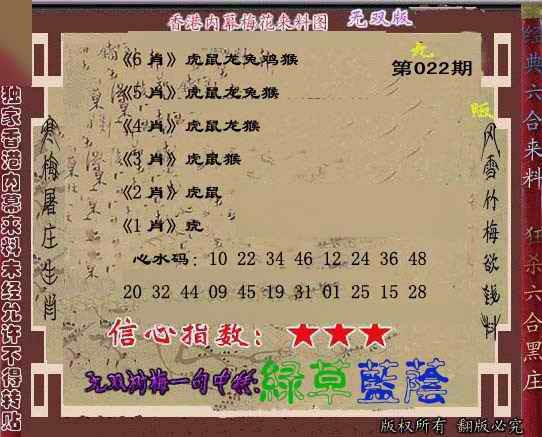 香港内幕梅花来料图 无双版
第022期
无
版
《6 肖》虎鼠龙兔鸡猴
《5 肖》虎鼠龙兔猴
《4 肖》虎鼠龙猴
《3 肖》虎鼠猴
《2 肖》虎鼠
《1 肖》虎
心水码：10 22 34 46 12 24 36 48
20 32 44 09 45 19 31 01 25 15 28
信心指数：★★★
绿草蓝荫
独家香港内幕来料未经允许不得转贴
寒梅屠庄生肖
风雪竹梅欲钱料
经典六合来料
狂杀六合黑庄
版权所有 翻版必究